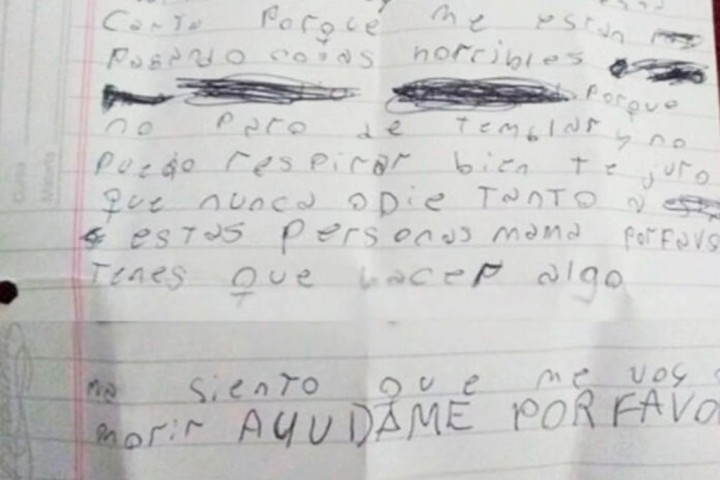 carta Porque me están
Pasando cosas horribles
Porque
no Paro de temblar y no
Puedo respirar bien te juro
que nunca odie TANTO a
estas personas mamá porfavo
Tenes que hacer algo
me siento que me voy a
morir AYUDAME PORFAVO